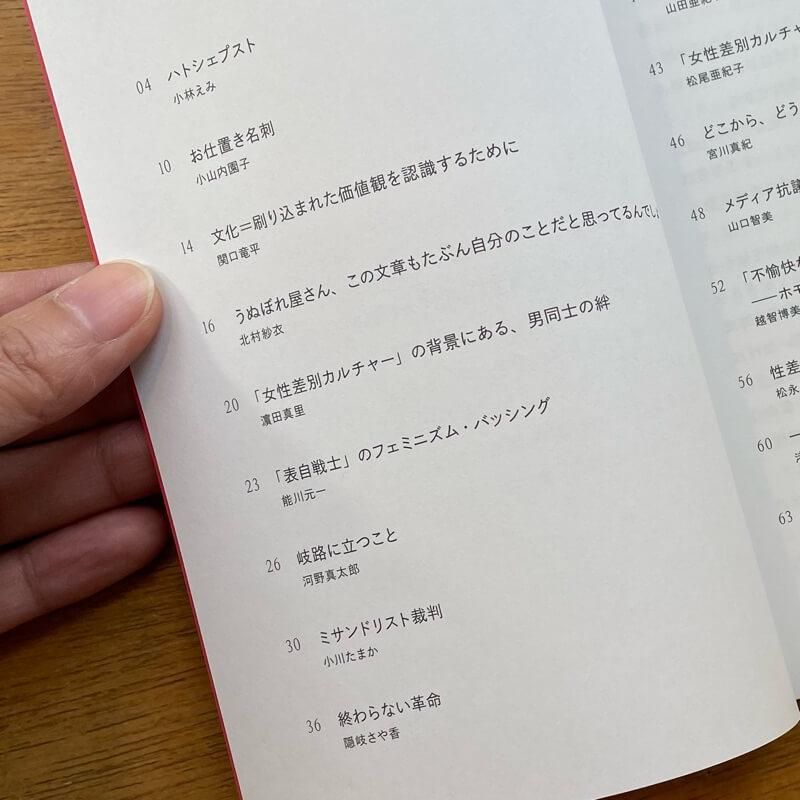 04 ハトシェプスト
小林えみ
10 お仕置き名刺
小山内園子
14 文化＝刷り込まれた価値観を認識するために
関口竜平
16 うぬぼれ屋さん、この文章もたぶん自分のことだと思ってるんでし
北村紗衣
20 「女性差別カルチャー」の背景にある、男同士の絆
濵田真里
23 「表自戦士」のフェミニズム・バッシング
能川元一
26 岐路に立つこと
河野真太郎
30 ミサンドリスト裁判
小川たまか
36 終わらない革命
隠岐さや香
山田亜紀
43 「女性差別カルチャ
松尾亜紀子
46 どこから、どう
宮川真紀
48 メディア抗議
山口智美
52 「不愉快な
──ホモ
越智博美
56 性差
松永
60
63